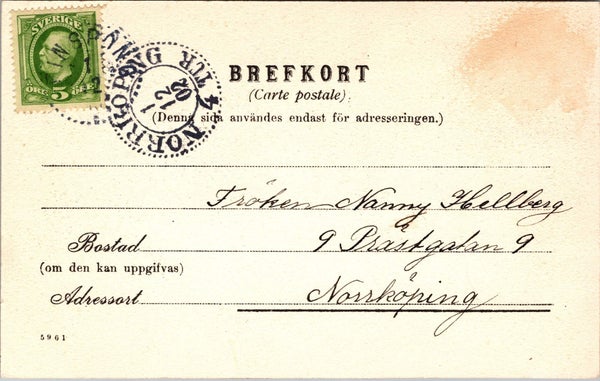 SVERIGE
ÖRE 5 ÖRE
NORRKÖPING
4 TUR
1
12
02
BREFKORT
(Carte postale).
(Denna sida användes endast för adresseringen.)
Fröken Nanny Hellberg
Bostad 9 Prästgatan 9
(om den kan uppgifvas)
Adressort Norrköping
5961